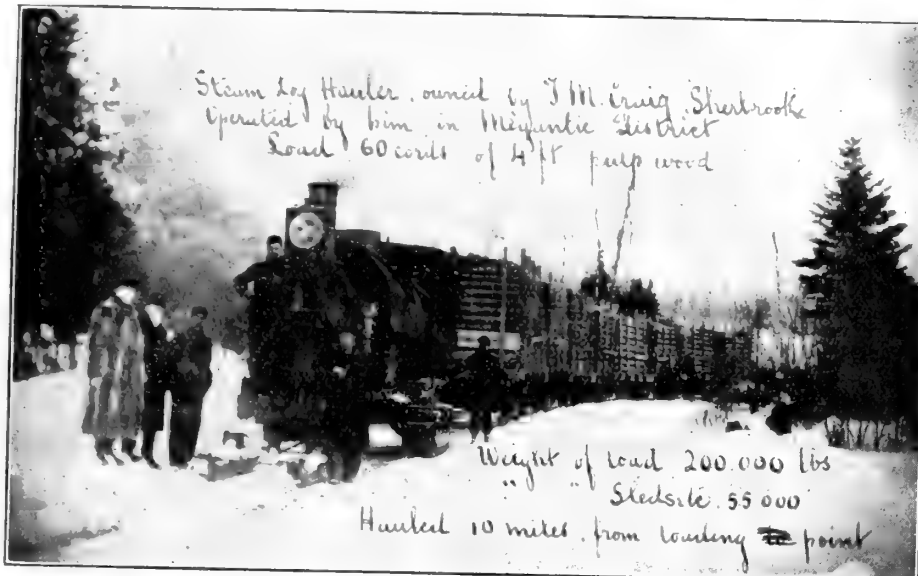 Steam Log Hauler. owned by T M. Craig Sherbrooke
Operated by him in Megantic District
Load 60 cords of 4 ft pulp wood
Weight of load 200.000 lbs
" " Sledsite. 55 000
Hauled 10 miles. from loading to point